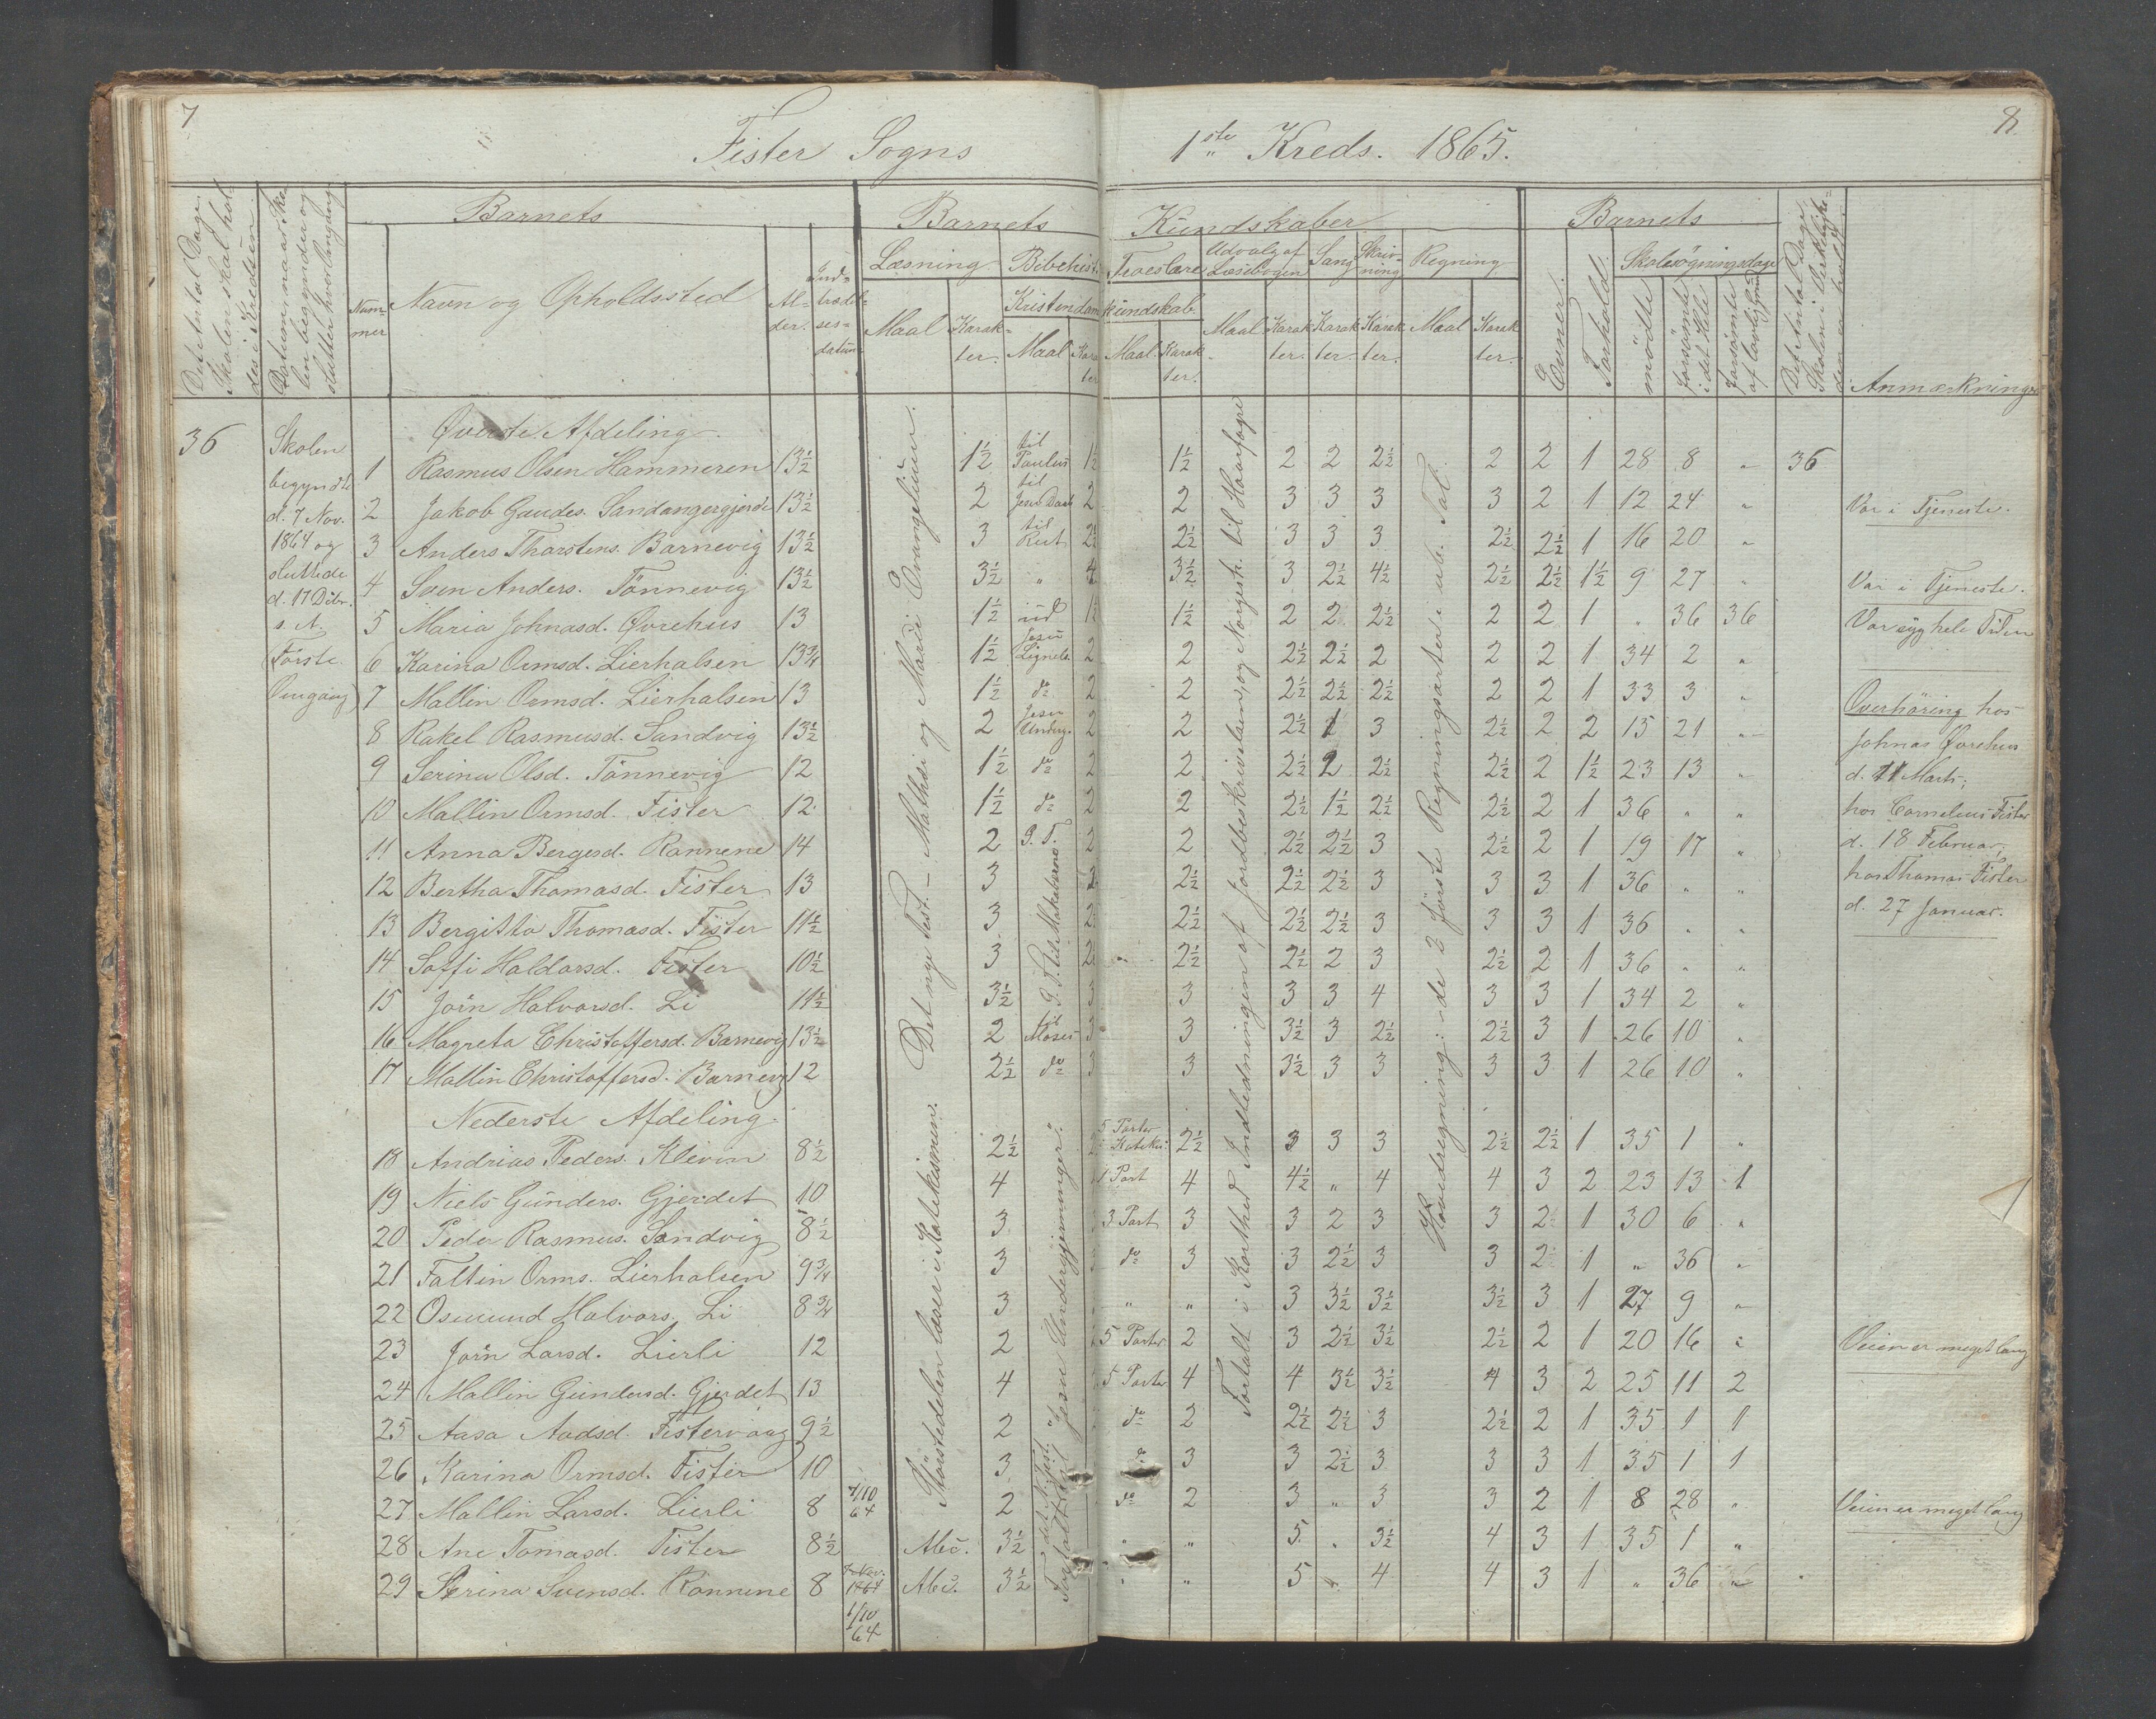 7
Fister Sogns
1ste Kreds. 1865.
8.
Det Antal Dage Skolen skal holdes i Kredsen.
Datum naar Skolen begynder og slutter hver Omgang
Barnets
Nummer
Navn og Opholdssted
Alder.
Indtrædelsesdatum
Barnets Kundskaber
Læsning
Bibelhist.
Troeslære
Udvalg af Læsebogen
Sang
Skrivning
Regning
Kristendomskundskab.
Maal
Karakter.
Maal
Karakter
Maal
Karakter.
Maal
Karakter.
Karakter.
Karakter.
Maal
Karakter.
Barnets
Evner.
Forhold.
Skolesøgningsdage
mødte
forsømte i det Hele
forsømte af lovlig Grund
Det Antal Dage Skolen i Virkeligheden er holdt.
Anmærkninger
36
Skolen
begyndte
d. 7 Nov.
1864 og
sluttede
d. 17 Dcbr.
s. A.
(Første
Omgang)
Øverste Afdeling.
1 Rasmus Olsen Hammeren 13½ 1½ til Paulus 1½ 1½ 2 2 2½ 2 2 1 28 8 „ 36
2 Jakob Gaudes. Sandangergjerde 13½ 2 til Jesu Daab 2 2 3 3 3 3 2 1 12 24 „ Var i Tjeneste.
3 Anders Tharstens. Barnevig 13½ 3 til Rut 2½ 2½ 3 3 3 2½ 2½ 1 16 20 „
4 Sven Anders. Tønnevig 13½ 3½ „ 4 3½ 3 2½ 4½ 2½ 2½ 1½ 9 27 „ Var i Tjeneste.
5 Maria Johnasd. Øvrehus 13 1½ ud 1½ 1½ 2 2 2½ 2 2 1 „ 36 36 Var syg hele Tiden
6 Karina Ormsd. Lierhalsen 13¾ 1½ Jesu Lignels. 2 2 2½ 2½ 2 2 2 1 34 2 „
7 Mallin Ormsd. Lierhalsen 13 1½ do 2 2 2½ 2½ 2½ 2 2 1 33 3 „
8 Rakel Rasmusd. Sandvig 13½ 2 Jesu Underg. 2 2 2½ 1 3 2½ 2 2 15 21 „
9 Serina Olsd. Tønnevig 12 1½ do 2 2 2½ 2 2½ 2½ 2 1½ 23 13 „
10 Mallin Ormsd. Fister 12 1½ do 2 2 2½ 1½ 2½ 2½ 2 1 36 „ „
11 Anna Bergesd. Rannene 14 2 G. T. 2 2 2½ 2½ 3 2½ 2 1 19 17 „
12 Bertha Thomasd. Fister 13 3 2½ 2½ 2½ 3 3 3 1 36 „ „
13 Bergitta Thomasd. Fister 11½ 3 2½ 2½ 2½ 3 3 3 1 36 „ „
14 Saffi Haldorsd. Fister 10½ 3 2½ 2½ 2 3 2½ 2 1 36 „ „
15 Jørn Halvorsd. Li 11½ 3½ 3 3 3 3 4 3 3 1 34 2 „
16 Magreta Christoffersd. Barnevig 13½ 2 til Moses 3 3 3½ 3 2½ 2½ 3 1 26 10 „
17 Mallin Christoffersd. Barnevig 12 2½ do 3 3 3½ 3 3 3 3 1 26 10 „
Overhøring hos
Johnas Øvrehus
d. 11 Marts;
hos Cornelius Fister
d. 18 Februar;
hos Thomas Fister
d. 27 Januar.
Nederste Afdeling.
18 Andrias Peders. Klevin 8½ 2½ 5 Parter Kateki. 2½ 3 3 3 2½ 2½ 1 35 1 „
19 Niels Gunders. Gjerdet 10 4 1 Part 4 4½ „ 4 4 3 2 23 13 1
20 Peder Rasmus. Sandvig 8½ 3 3 Part 3 3 2 3 3 2 1 30 6 „
21 Faltin Orms. Lierhalsen 9¾ 3 do 3 3 2½ 3 3 2 1 „ 36 „
22 Osmund Halvors. Li 8¾ 3 „ „ 3 3½ 3½ 3½ 3 1 27 9 „
23 Jørn Larsd. Lierli 12 2 5 Parter 2 3 2½ 3½ 2½ 2 1 20 16 „ Veien er meget lang
24 Mallin Gundersd. Gjerdet 13 4 5 Parter 4 4 3½ 3½ 4 3 2 25 11 2
25 Aasa Aadsd. Fistervaag 9½ 2 do 2 2½ 2½ 3 2½ 2 1 35 1 1
26 Karina Ormsd. Fister 10 3 do 3 3 2½ 3 3 3 1 35 1 1
27 Mallin Larsd. Lierli 8 1/10 64 2 do 2 3 „ 3 3 2 1 8 28 „ Veien er meget lang
28 Ane Tomasd. Fister 8½ Abc. 3½ „ „ 5 „ 3½ 4 3 1 35 1 „
29 Serina Svensd. Rannene 8 7 Nov. 1864 1/10 64 Abc. 3½ „ „ 5 „ 4 4 3 1 „ 36 „
Det nye Test. – Mathæi og Mardi Evangelium.
Størstedelen læser i Katekismen.
G. T. til Makabæerne
Fortalt af det N. Test. "Jesu Undergjerninger".
Fortalt i Korthed Indledningen af Jordbeskrivelsen, og Norgesh. til Haarfagre
Hovedregning: de 2 første Regningsarter i ub. Tal.